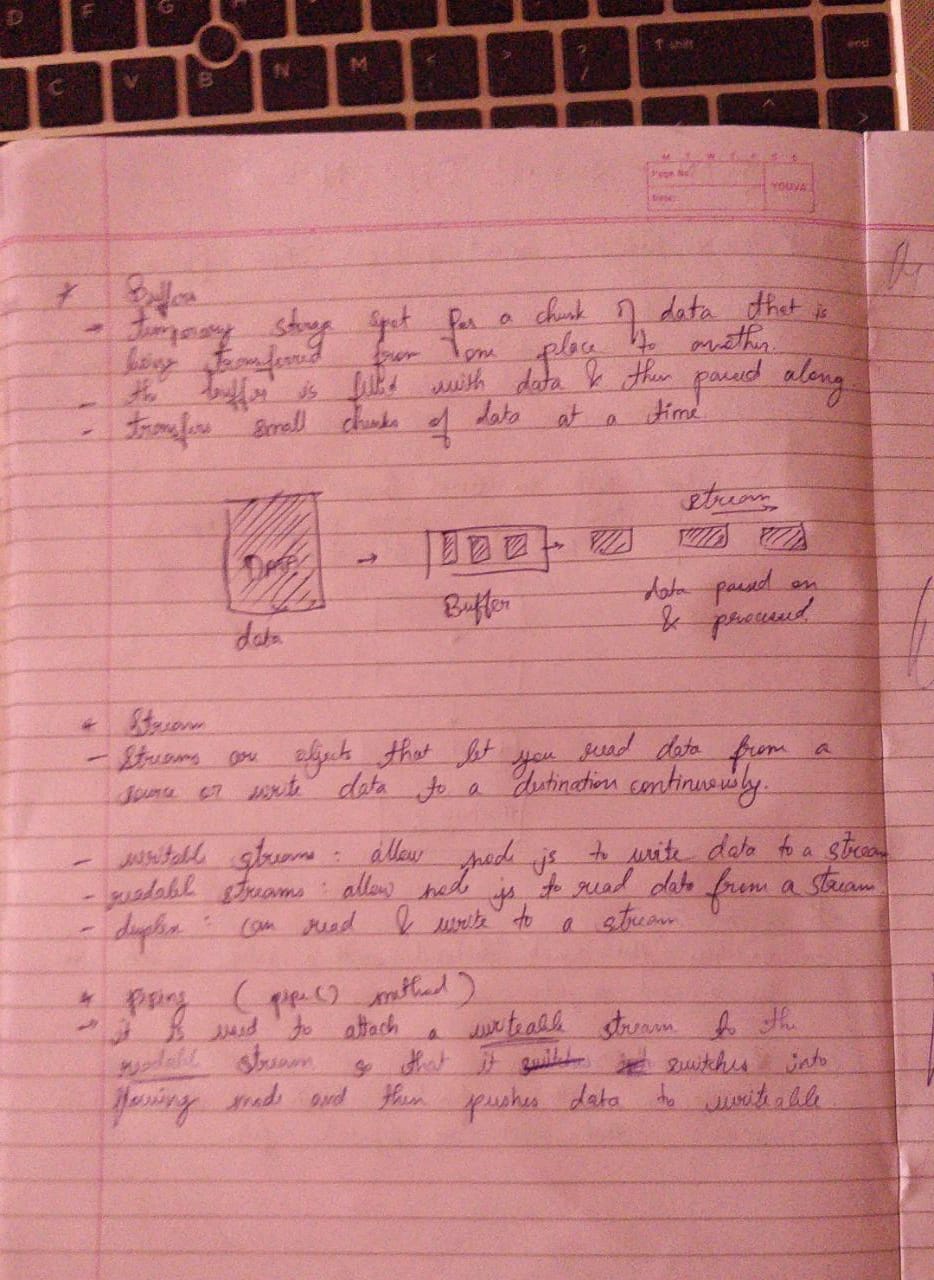 D F G H
C V B N M < > ? / ↑ shift end
M T W T F S S
Page No.:
YOUVA
Date:
* Buffers
→ temporary storage spot for a chunk of data that is
being transferred from one place to another.
- the buffer is filled with data & then passed along
- transfers small chunks of data at a time
stream
DATA → → 
Buffer
data passed on
& processed
data
* Stream
- Streams are objects that let you read data from a
source or write data to a destination continuously.
- writable streams : allow node js to write data to a stream
- readable streams : allow node js to read data from a stream
- duplex : can read & write to a stream
* Piping ( pipe() method )
→ it is used to attach a writeable stream to the
readable stream so that it switches into
flowing mode and then pushes data to writeable